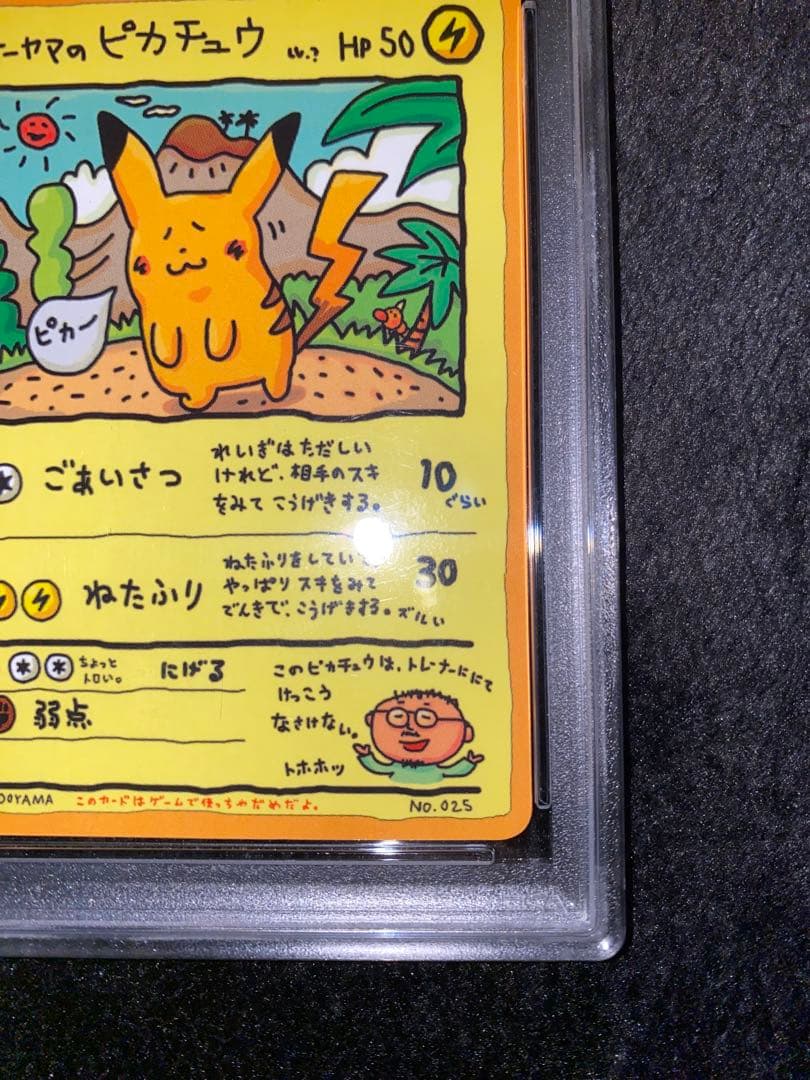 ーヤマの ピカチュウ LV.? HP 50
ピカー
ごあいさつ
れいぎはただしい
けれど、相手のスキ
をみて こうげきする。
10
ぐらい
ねたふり
ねたふりをしていて
やっぱり スキをみて
でんきで、こうげきする。ズルい
30
ちょっと
トロい。
にげる
弱点
このピカチュウは、トレーナーににて
けっこう
なさけない。
トホホッ
OOYAMA このカードはゲームで使っちゃだめだよ。 NO. 025